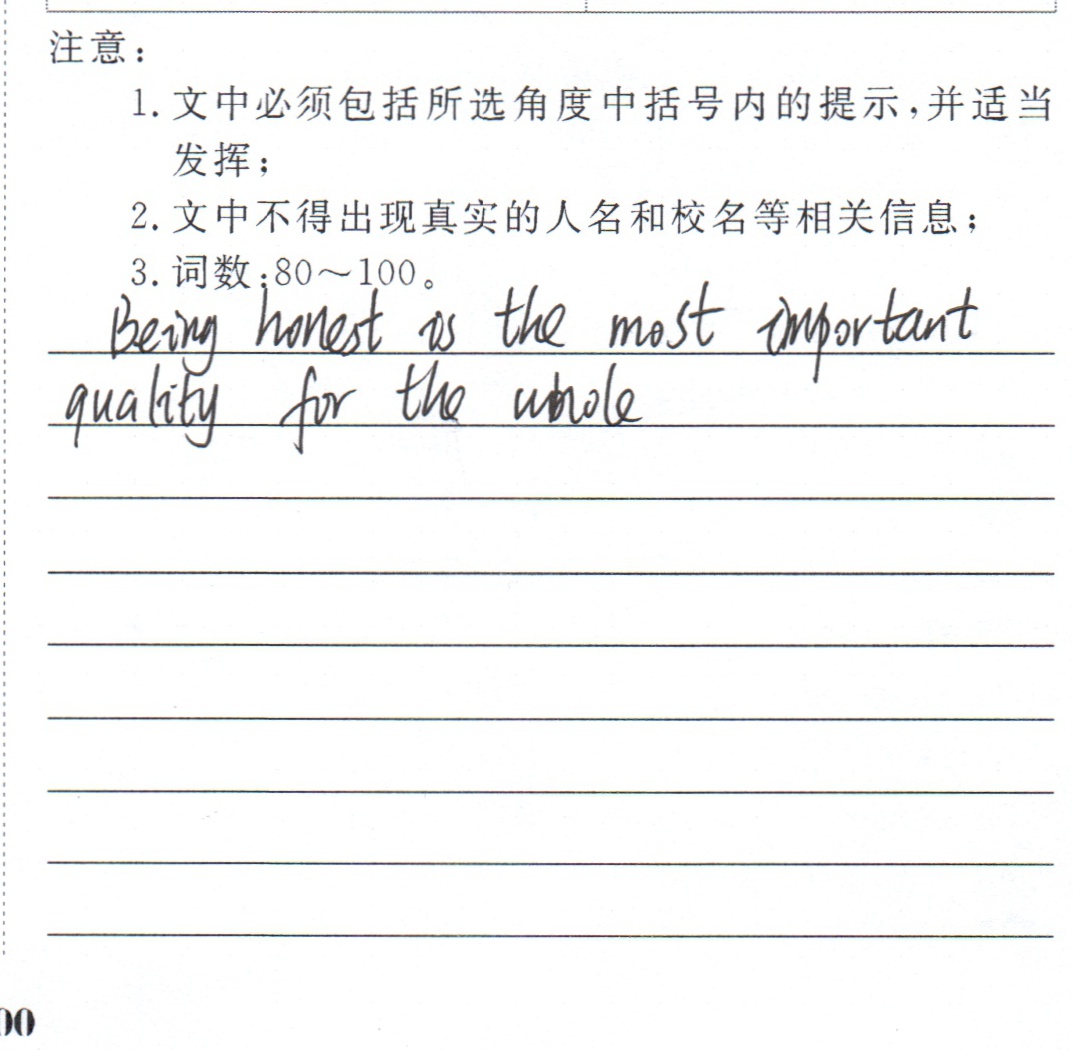 注意：
1. 文中必须包括所选角度中括号内的提示，并适当
发挥；
2. 文中不得出现真实的人名和校名等相关信息；
3. 词数：80～100。
Being honest is the most important
quality for the whole
00